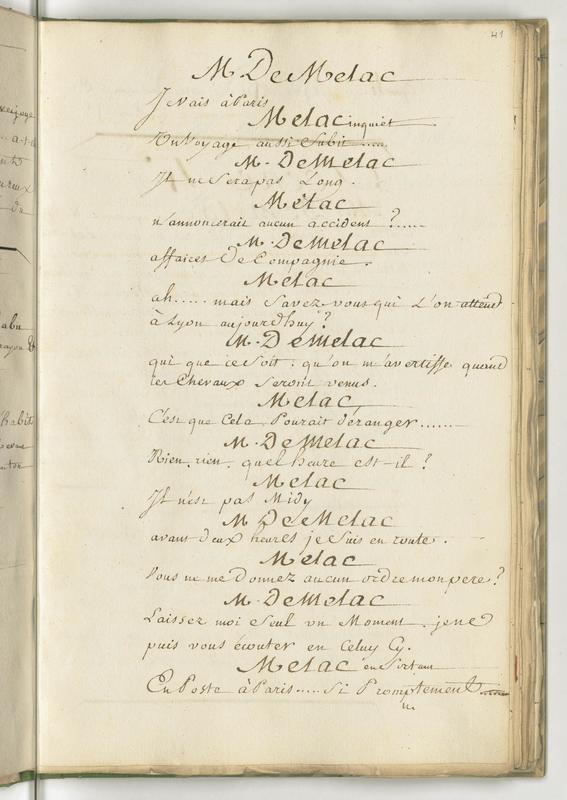 41
M. De Melac
Je vais à Paris
Melac inquiet
Un Voyage aussi Subit.....
M. De Melac
Il ne Sera pas Long.
Mélac
n'annoncerait aucun accident ?.....
M. De Melac
affaires De Compagnie.
Melac
ah..... mais Savez vous qui L'on attend
à Lyon aujourd'huy ?
M. De Melac
qui que ce Soit : qu'on m'avertisse quand
les Chevaux Seront venus.
Melac
C'est que Cela Pourait déranger.......
M. De Melac
Rien, rien, quel heure est-il ?
Melac
Il n'est pas Midy
M. De Melac
avant deux heures je Suis en route.
Melac
Vous ne me Donnez aucun ordre mon pere ?
M. De Melac
Laissez moi Seul un Moment. je ne
puis vous écouter en Celuy Cy.
Melac en Sortant
En Poste à Paris..... Si Promptement.....